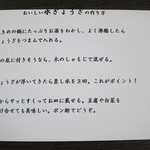 おいしい水ぎょうざの作り方
きめの鍋にたっぷりお湯をわかし、よく沸騰したら
ょうざをつまんで入れる。
の底に付きそうなら、木のしゃもじで混ぜる。
ょうざが浮いてきたら差し水を3回。これがポイント!
からサッとすくってお皿に載せる。豆腐や白菜を
せても美味しい。ポン酢でどうぞ。